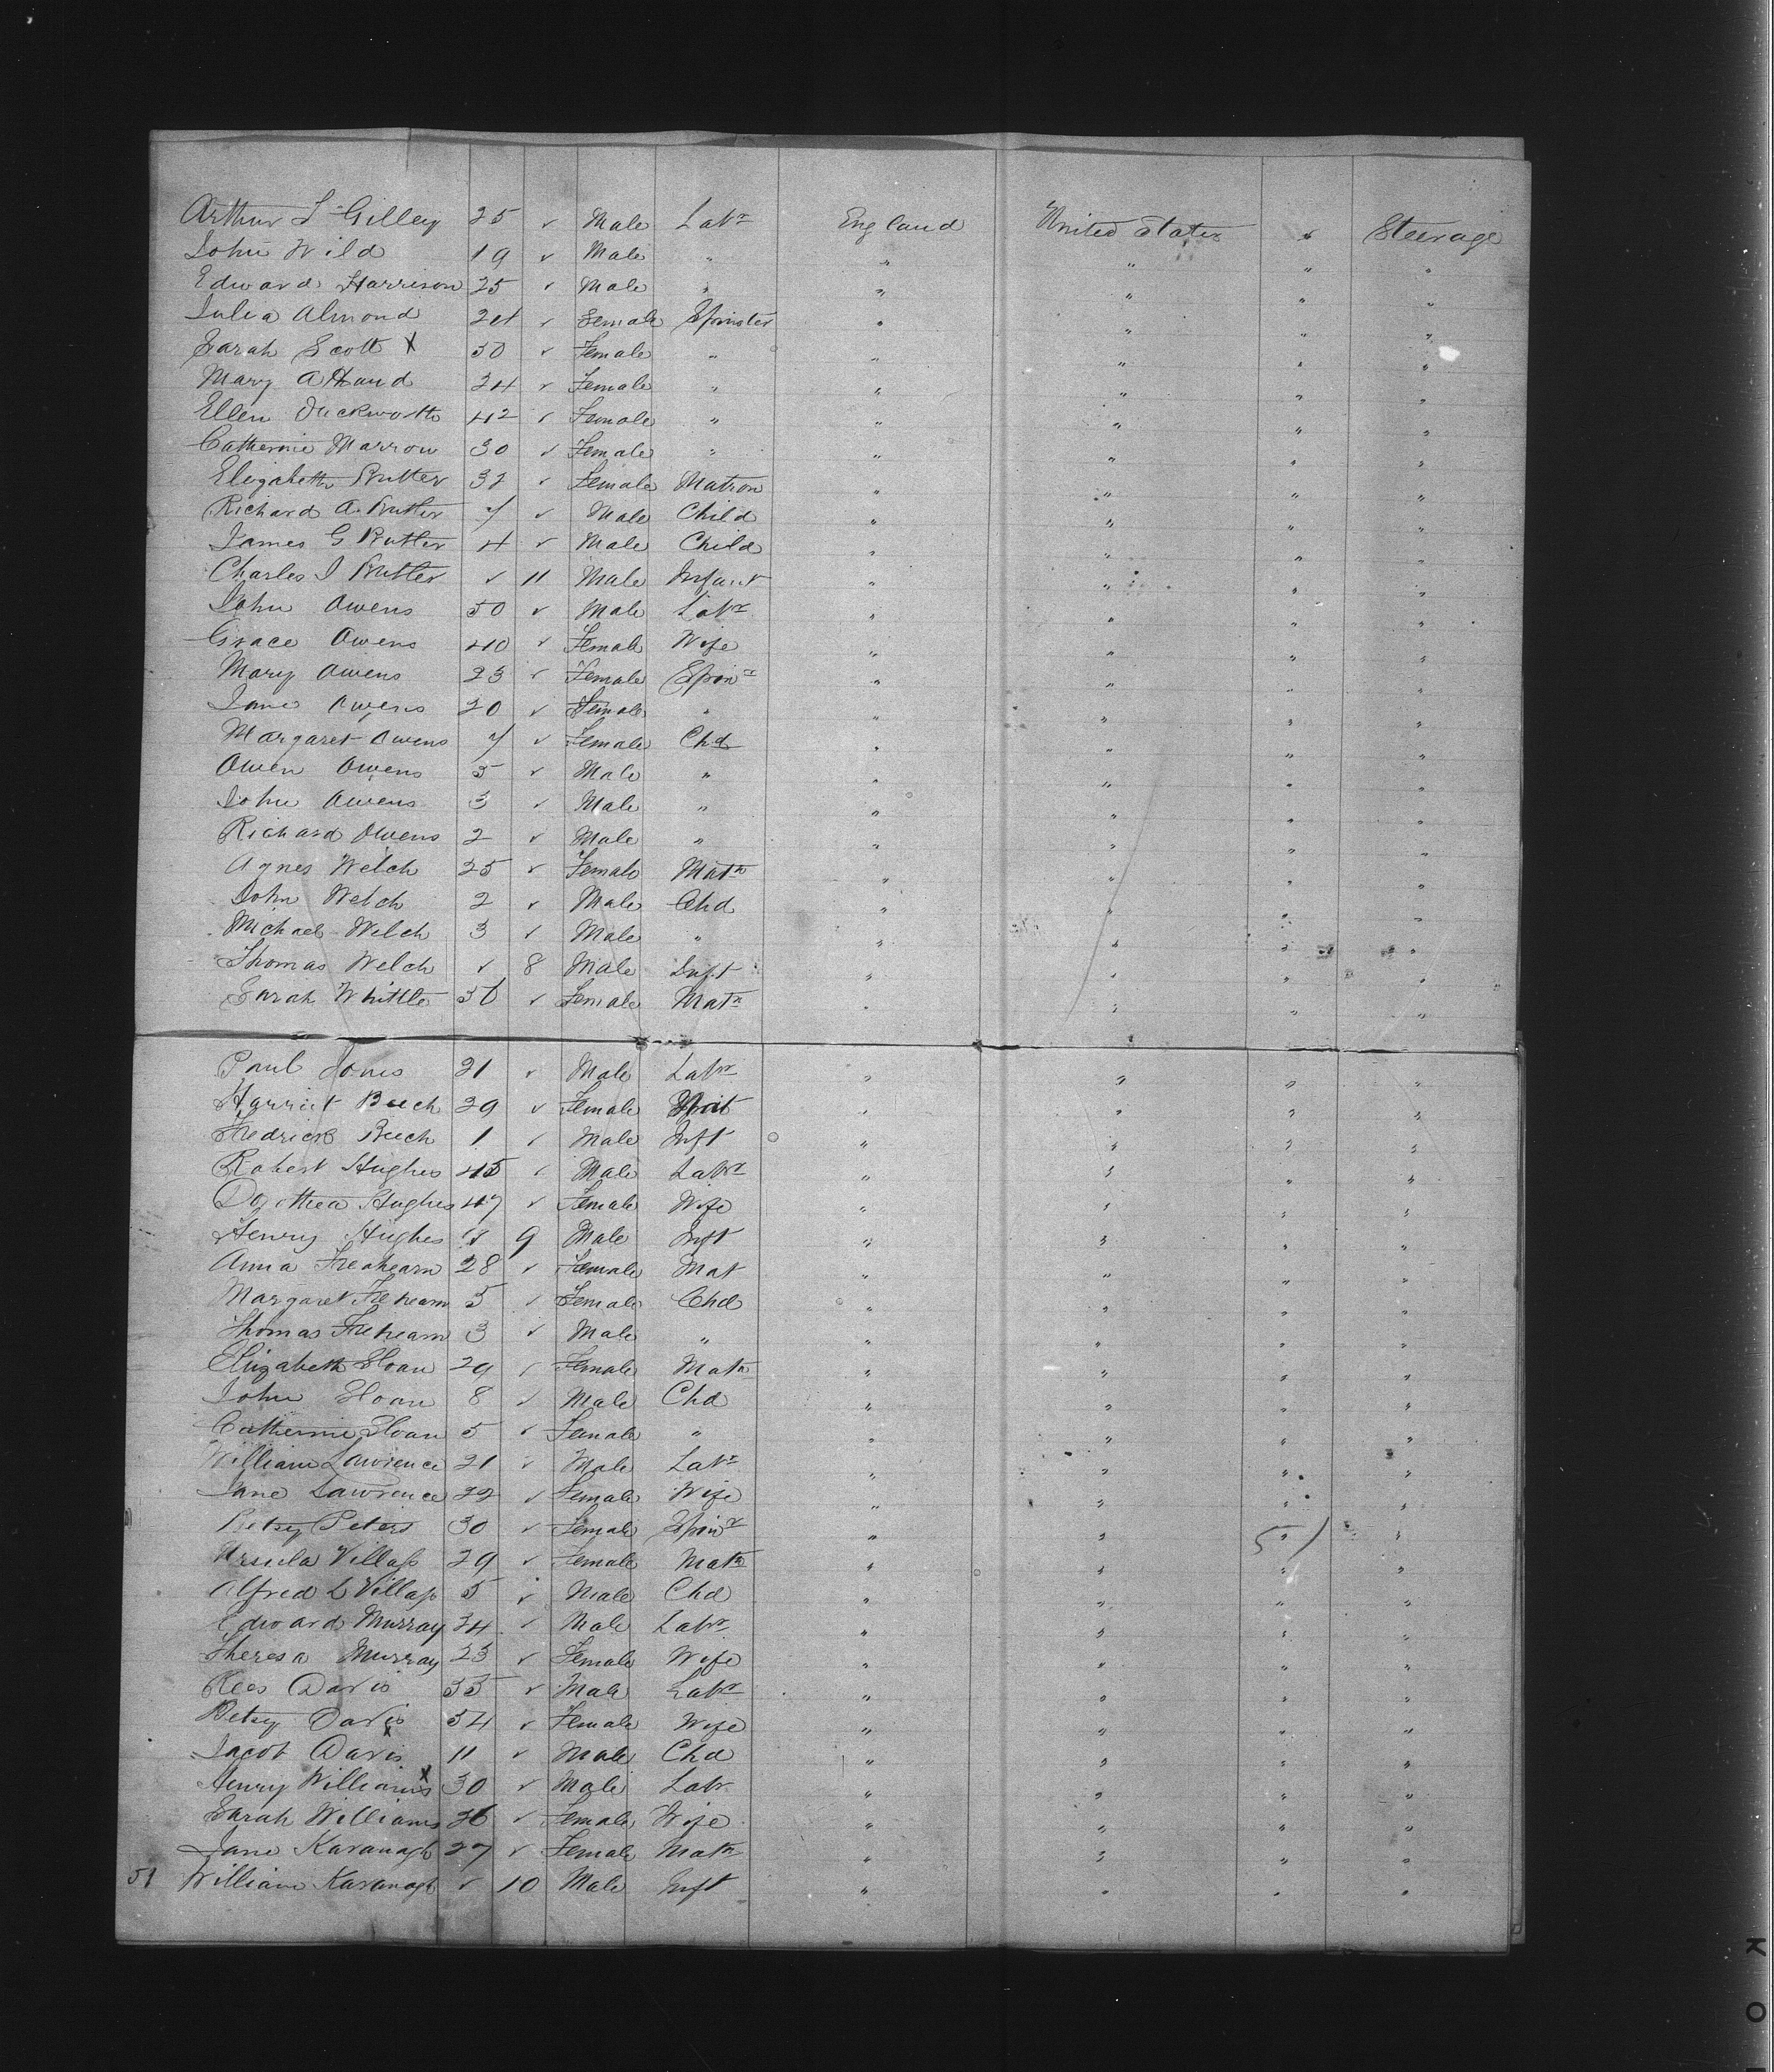 Arthur L Gilley 25 ✓ Male Labr England United States " Steerage
John Wild 19 ✓ Male " " " " "
Edward Harrison 25 ✓ Male " " " " "
Julia Almond 24 ✓ Female Spinster " " " "
Sarah Scott X 30 ✓ Female " " " " "
Mary A Hand 24 ✓ Female " " " " "
Ellen Duckworth 42 ✓ Female " " " " "
Catherine Marrow 30 ✓ Female " " " " "
Elizabeth Rutter 32 ✓ Female Matron " " " "
Richard A. Rutter 7 ✓ Male Child " " " "
James G Rutter 4 ✓ Male Child " " " "
Charles J Rutter ✓ 11 Male Infant " " " "
John Owens 50 ✓ Male Labr " " " "
Grace Owens 40 ✓ Female Wife " " " "
Mary Owens 23 ✓ Female Spinr " " " "
Jane Owens 20 ✓ Female " " " " "
Margaret Owens 7 ✓ Female Chd " " " "
Owen Owens 5 ✓ Male " " " " "
John Owens 3 ✓ Male " " " " "
Richard Owens 2 ✓ Male " " " " "
Agnes Welch 25 ✓ Female Matn " " " "
John Welch 2 ✓ Male Chd " " " "
Michael Welch 3 ✓ Male " " " " "
Thomas Welch ✓ 8 Male Inft " " " "
Sarah Whittle 36 ✓ Female Matn " " " "
Paul Jones 21 ✓ Male Labr " " " "
Harriet Beech 29 ✓ Female " " " "
Fredrick Beech 1 ✓ Male Inft " " " "
Robert Hughes 45 ✓ Male Labr " " " "
Dorothea Hughes 47 ✓ Female Wife " " " "
Henry Hughes ✓ 9 Male Inft " " " "
Anna 28 ✓ Female Mat " " " "
Margaret 5 ✓ Female Chd " " " "
Thomas 3 ✓ Male " " " " "
Elizabeth Sloan 29 ✓ Female Matn " " " "
John Sloan 8 ✓ Male Chd " " " "
Catherine Sloan 5 ✓ Female " " " " "
William Lawrence 21 ✓ Male Labr " " " "
Jane Lawrence 22 ✓ Female Wife " " " "
Betsy Peters 30 ✓ Female Spinr " " 51 " "
Ursula Villass 29 ✓ Female Matn " " " "
Alfred L Villass 5 ✓ Male Chd " " " "
Edward Murray 34 ✓ Male Labr " " " "
Theresa Murray 23 ✓ Female Wife " " " "
Rees Davis 35 ✓ Male Labr " " " "
Betsy Davis 34 ✓ Female Wife " " " "
Jacob Davis X 11 ✓ Male Chd " " " "
Henry Williams X 30 ✓ Male Labr " " " "
Sarah Williams 26 ✓ Female Wife " " " "
Jane Kavanagh 27 ✓ Female Matn " " " "
51 William Kavanagh ✓ 10 Male Inft " " " "
K O